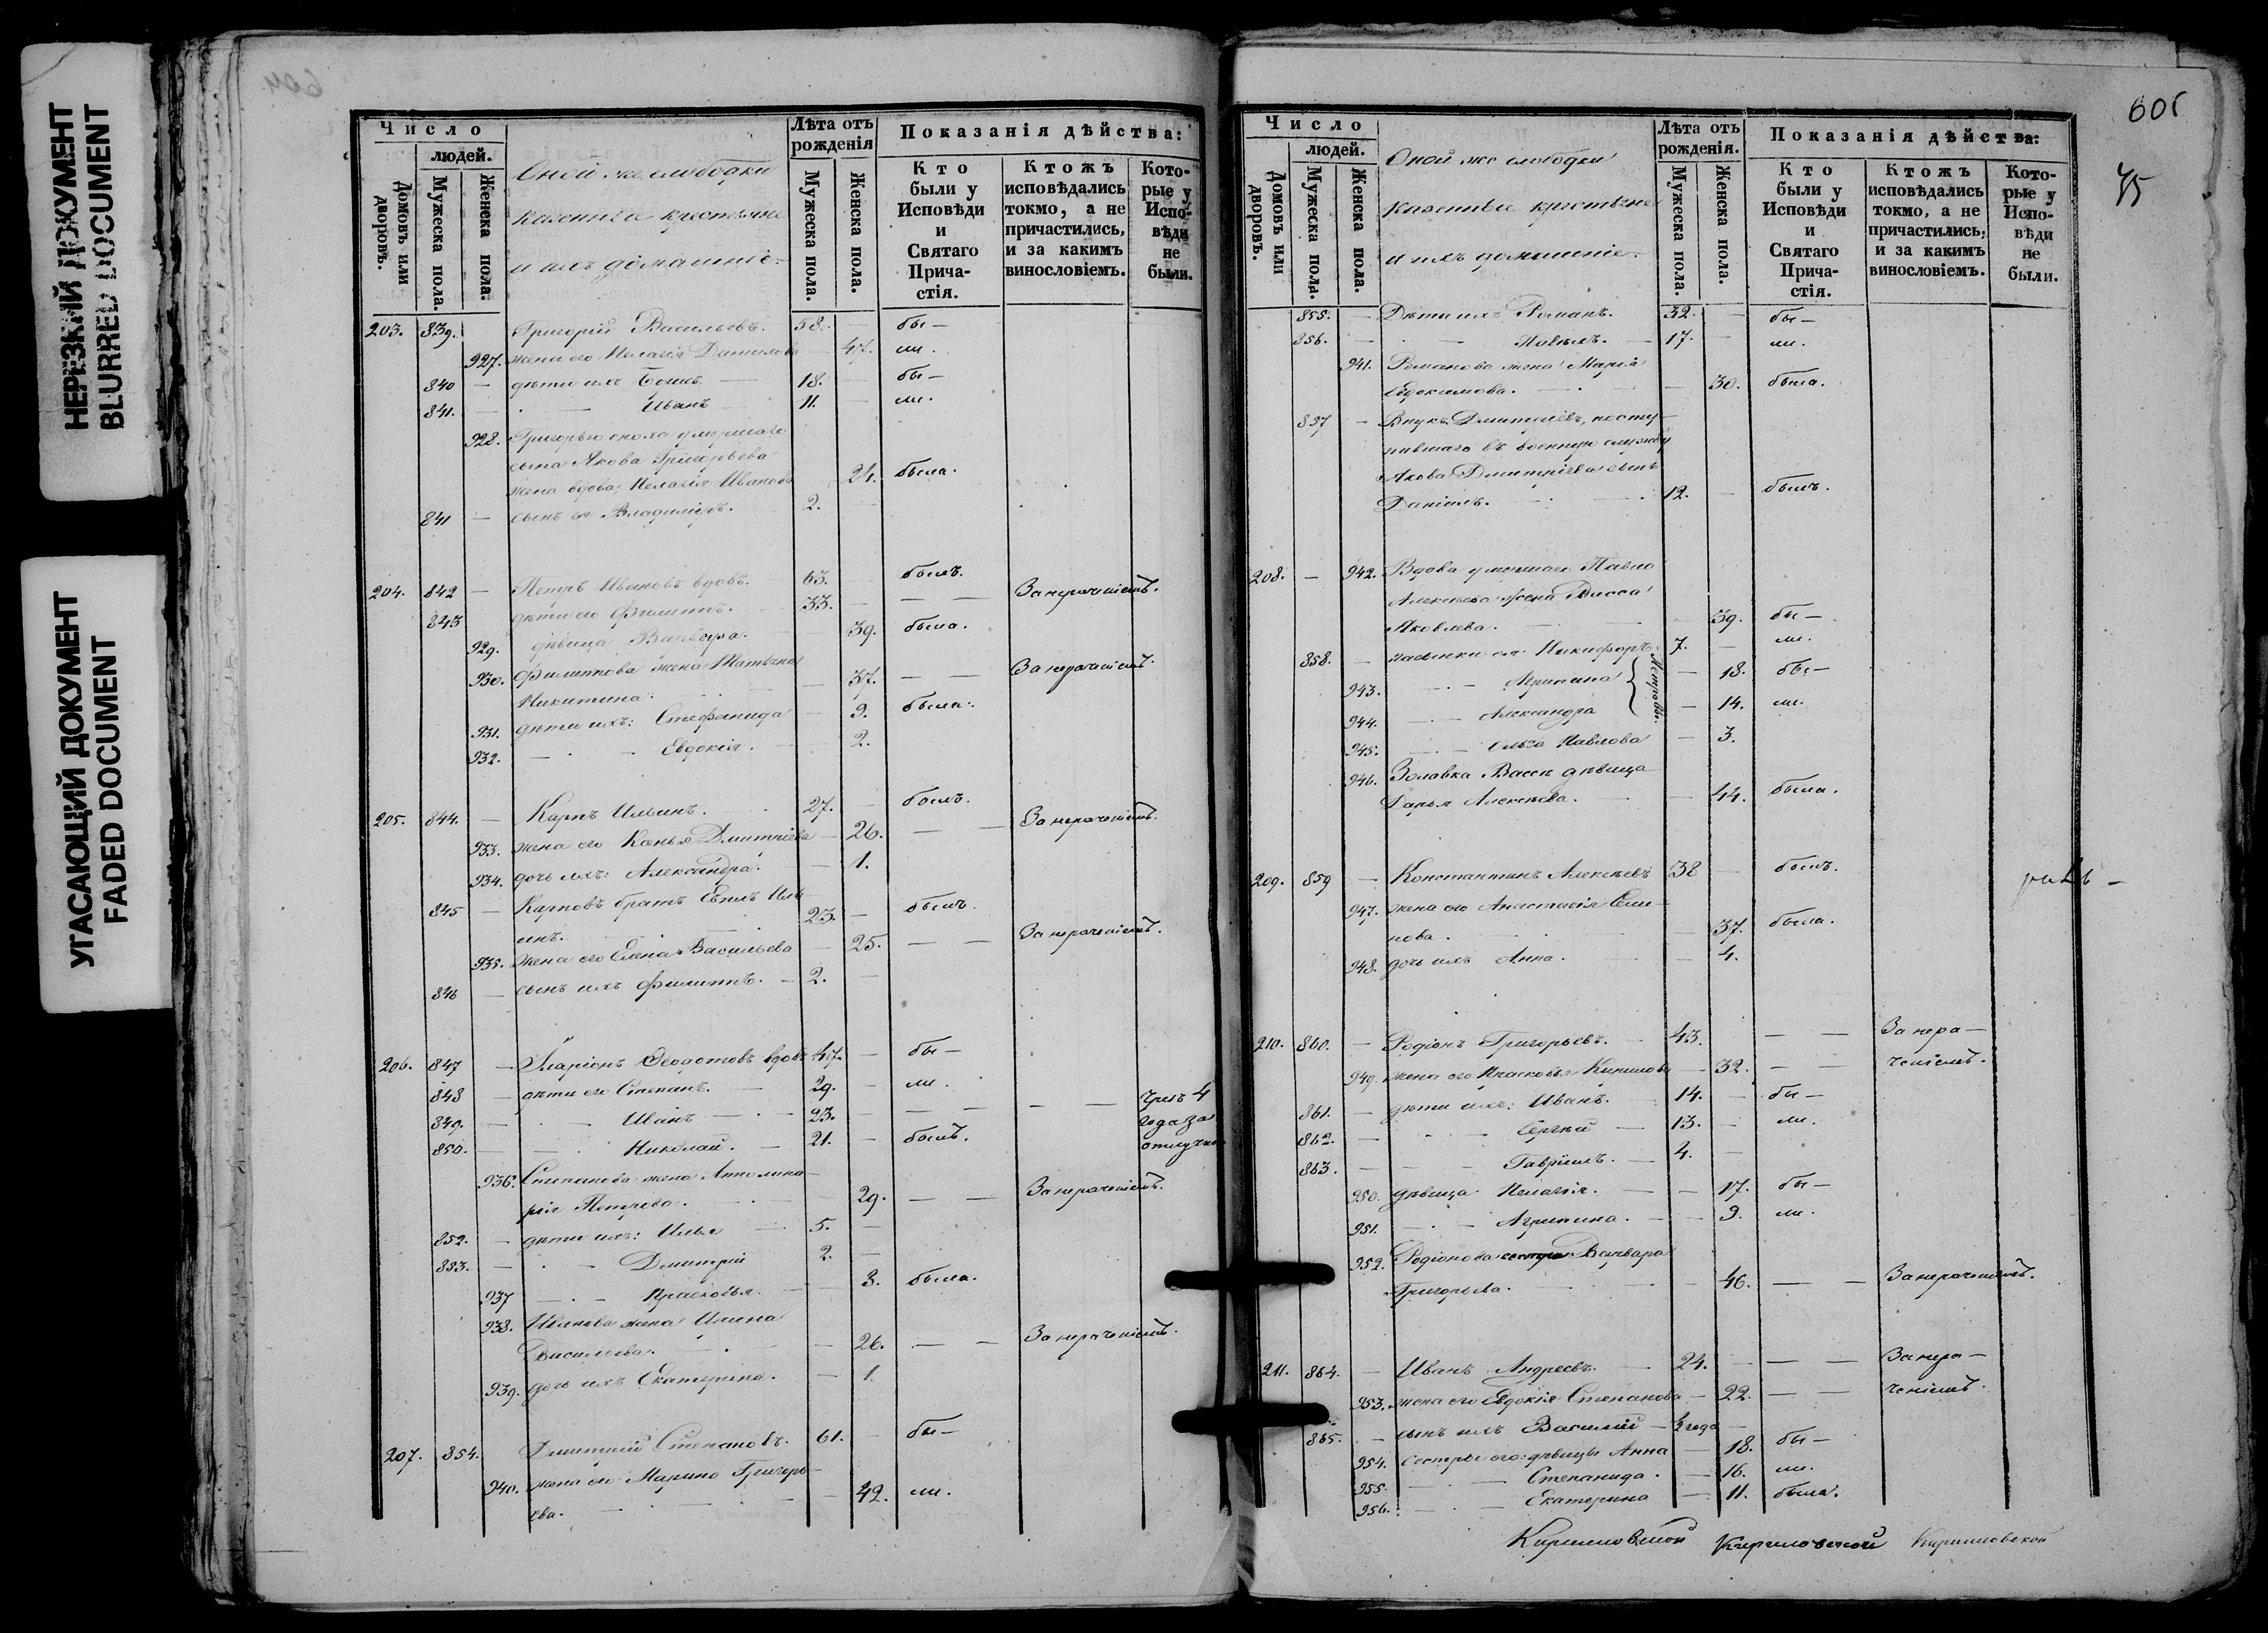 НЕРЕЗКИЙ ДОКУМЕНТ
BLURRED DOCUMENT
УГАСАЮЩИЙ ДОКУМЕНТ
FADED DOCUMENT
Число
людей.
Домовъ или дворовъ.
Мужеска пола.
Женска пола.
Оной же слободки
казенные крестьяне
и ихъ домашніе.
Лѣта отъ рожденія
Мужеска пола.
Женска пола.
Показанія дѣйства:
Кто были у Исповѣди и Святаго Прича-стія.
Ктожъ исповѣдались токмо, а не причастились, и за какимъ винословіемъ.
Кото-рые у Испо-вѣди не были.
203. 839. Григорій Васильевъ. 58. — бы —
927. жена его Пелагія Данилова — 47. ли.
840 — дѣти ихъ — 18. бы —
841. — Иванъ 11. — ли.
928. Григорьева сноха умершаго
сына Якова Григорьева
жена вдова Пелагія Иванова 24. была.
841 — сынъ ея Владиміръ. 2. —
204. 842 — Петръ Ивановъ вдовъ. 63. — былъ.
843 дѣти его Филиппъ. 33. — — — За нераченіемъ.
929. дѣвица Варвара. — 39. была.
930. Филиппова жена Татьяна
Никитина. — 37. — — За нераченіемъ.
931. дѣти ихъ: Стефанида — 9. была.
932. — Евдокія. 2.
205. 844. — Карпъ Ильинъ. 27. — былъ.
933. жена его Дмитріева — 26. — — За нераченіемъ.
934. дочь ихъ: Александра. — 1.
845 — Карповъ братъ Иль-
инъ. 23. — былъ.
935. жена его Елена Васильева — 25. — — За нераченіемъ.
846 — сынъ ихъ Филиппъ. — 2. —
206. 847 — Ларіонъ Ѳеодотовъ вдовъ 47. — бы —
848 — дѣти его Степанъ. — 29. — ли.
849. — Иванъ — 23. — — — — 4
года за
850. — Николай. — 21. — былъ. отлучк
936. Степанова жена Апполина-
рія Петрова. 29. — — За нераченіемъ.
852. — дѣти ихъ: Илья 5. —
853. — Дмитрій 2. —
937 — Прасковья. — 8. была.
938. Иванова жена Ирина
Васильева. — 26. — — За нераченіемъ.
939. дочь ихъ Екатерина. — 1.
207. 854. Дмитрій Степановъ. 61. — бы —
940. жена его Марина Григорь-
ева. — — 42. ли.
605
45
Число
людей.
Домовъ или дворовъ.
Мужеска пола.
Женска пола.
Оной же слободки
казенные крестьяне
и ихъ домашніе.
Лѣта отъ рожденія.
Мужеска пола.
Женска пола.
Показанія дѣйства:
Кто были у Исповѣди и Святаго Прича-стія.
Ктожъ исповѣдались токмо, а не причастились, и за какимъ винословіемъ.
Кото-рые у Испо-вѣди не были.
855. — Дѣти ихъ Романъ. 32. — бы —
856. — Павелъ. — 17. — ли.
941. Романова жена Марія
Евдокимова. — 30. была.
857 — Внукъ Дмитріевъ, посту-
пившаго въ военную службу
Якова Дмитріева сынъ
Даніилъ. 12. — былъ.
208. — 942. Вдова умершаго Павла
Алексѣева жена Васса
Яковлева. 39. бы —
858. — пасынки ея Никифоръ 7. — ли.
943. — Агрипина — 18. бы —
944. — Александра — 14. ли.
Петровы.
945. — Ольга Павлова — 3.
946. Золовка Вассы дѣвица
Дарья Алексѣева. — 44. была.
209. 859 — Константинъ Алексѣевъ 38 — былъ.
947. жена его Анастасія Семе-
нова. — 37. была.
948. дочь ихъ Анна. — 4.
210. 860. — Родіонъ Григорьевъ. 43. — — За нера-
949. жена его Прасковья Кирилова — 32. — — ченіемъ.
861. — дѣти ихъ: Иванъ. — 14. — бы —
862. — Сергѣй — 13. — ли.
863. — Гавріилъ. — 4. —
950. дѣвица Пелагія. — 17. бы —
951. — Агрипина. — 9. ли.
952. Родіонова сестра Варвара
Григорьева. — 46. — — За нераченіемъ.
211. 864. — Иванъ Андреевъ. — 24. — — — За нера-
953. жена его Евдокія Степанова — 22. — — ченіемъ.
865. — сынъ ихъ Василій — ½ года —
954. сестры его: дѣвицы Анна — 18. бы —
955. — Степанида. — 16. ли.
956. — Екатерина — 11. была.
Кириловской Кириловской Кириловской